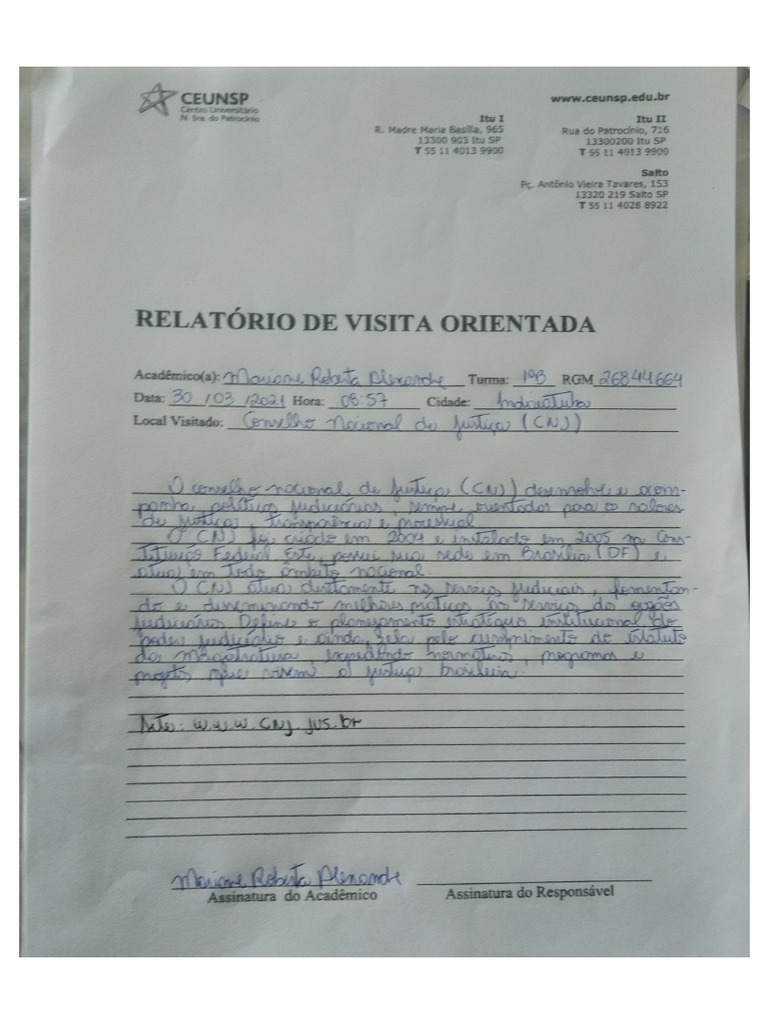 CEUNSP
Centro Universitário
N. Sra. do Patrocínio
www.ceunsp.edu.br
Itu I
R. Madre Maria Basília, 965
13300 903 Itu SP
T 55 11 4013 9900
Itu II
Rua do Patrocínio, 716
13300200 Itu SP
T 55 11 4013 9900
Salto
Pç. Antônio Vieira Tavares, 153
13320 219 Salto SP
T 55 11 4028 8922
RELATÓRIO DE VISITA ORIENTADA
Acadêmico(a): Mariane Roberta Alexandre Turma: 19B RGM 26844664
Data: 30 /03 /2021 Hora: 08:57 Cidade: Indaiatuba
Local Visitado: Conselho Nacional de Justiça (CNJ)
O conselho nacional de Justiça (CNJ) desenvolve e acom-
panha políticas judiciárias, sempre orientados para os valores
de justiça, transparência e processual.
O CNJ foi criado em 2004 e instalado em 2005 na Cons-
tituiçõ Federal. Este, possui sua sede em Brasília (DF) e
atua em todo âmbito nacional.
O CNJ atua diretamente nos serviços judiciais, fomentan-
do e disseminando melhores práticas aos serviços dos orgãos
judiciários. Define o planejamento estratégico institucional do
poder judiciário e ainda, zela pelo cumprimento do Estatuto
da Magistratura, expedindo normativas, programas e
projetos que visem a justiça brasileira.
Site: www.cnj.jus.br
Mariane Roberta Alexandre
Assinatura do Acadêmico
Assinatura do Responsável